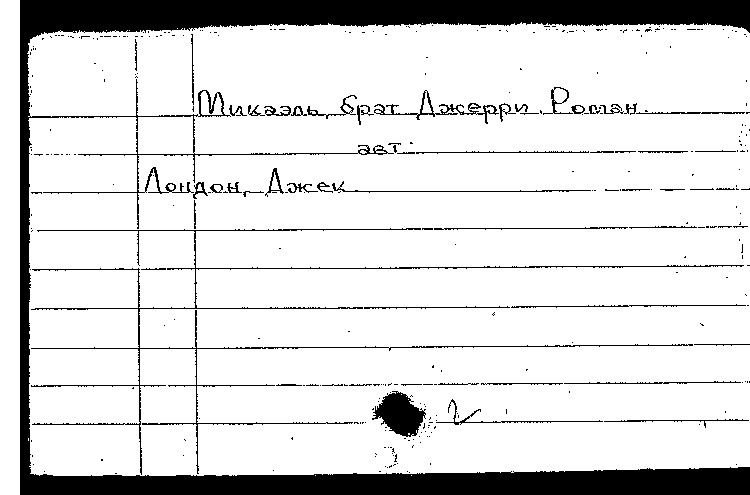 Микаэль, брат Джерри. Роман.
авт.
Лондон, Джек.